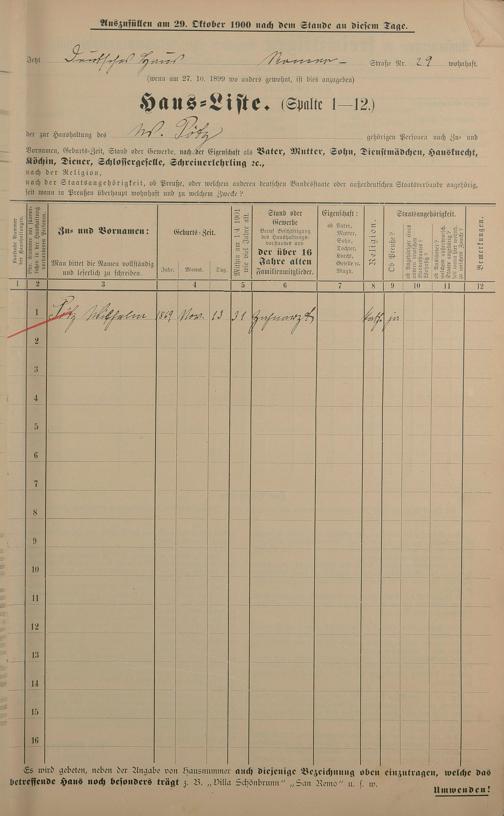 Auszufüllen am 29. Oktober 1900 nach dem Stande an diesem Tage.
Jetzt Deutsches Haus Römer- Straße Nr. 29 wohnhaft.
(wenn am 27. 10. 1899 wo anders gewohnt, ist dies anzugeben)
Haus-Liste. (Spalte 1—12.)
der zur Haushaltung des W. Pötz gehörigen Personen nach Zu- und
Vornamen, Geburts-Zeit, Stand oder Gewerbe, nach der Eigenschaft als Vater, Mutter, Sohn, Dienstmädchen, Hausknecht,
Köchin, Diener, Schlossergeselle, Schreinerlehrling ec.,
nach der Religion,
nach der Staatsangehörigkeit, ob Preuße, oder welchem anderen deutschen Bundesstaate oder außerdeutschen Staatsverbande angehörig,
seit wann in Preußen überhaupt wohnhaft und zu welchem Zwecke?
Zu- und Vornamen:
Man bittet die Namen vollständig
und leserlich zu schreiben.
Geburts-Zeit.
Jahr. Monat. Tag.
Mithin am 1/4 1901
wie viel Jahre alt.
Stand oder
Gewerbe
der über 16
Jahre alten
Familienmitglieder.
Eigenschaft:
ob Vater,
Mutter,
Sohn,
Tochter,
Knecht,
Geselle
Magd.
Religion.
Staatsangehörigkeit.
Ob Preuße?
Bemerkungen.
1 2 3 4 5 6 7 8 9 10 11 12
1 Pötz Wilhelm 1869 Nov. 13 31 Zahnarzt kath. ja
2
3
4
5
6
7
8
9
10
11
12
13
14
15
16
Es wird gebeten, neben der Angabe von Hausnummer auch diejenige Bezeichnung oben einzutragen, welche das
betreffende Haus noch besonders trägt z. B. „Villa Schönbrunn" „San Remo" u. s. w.
Umwenden!